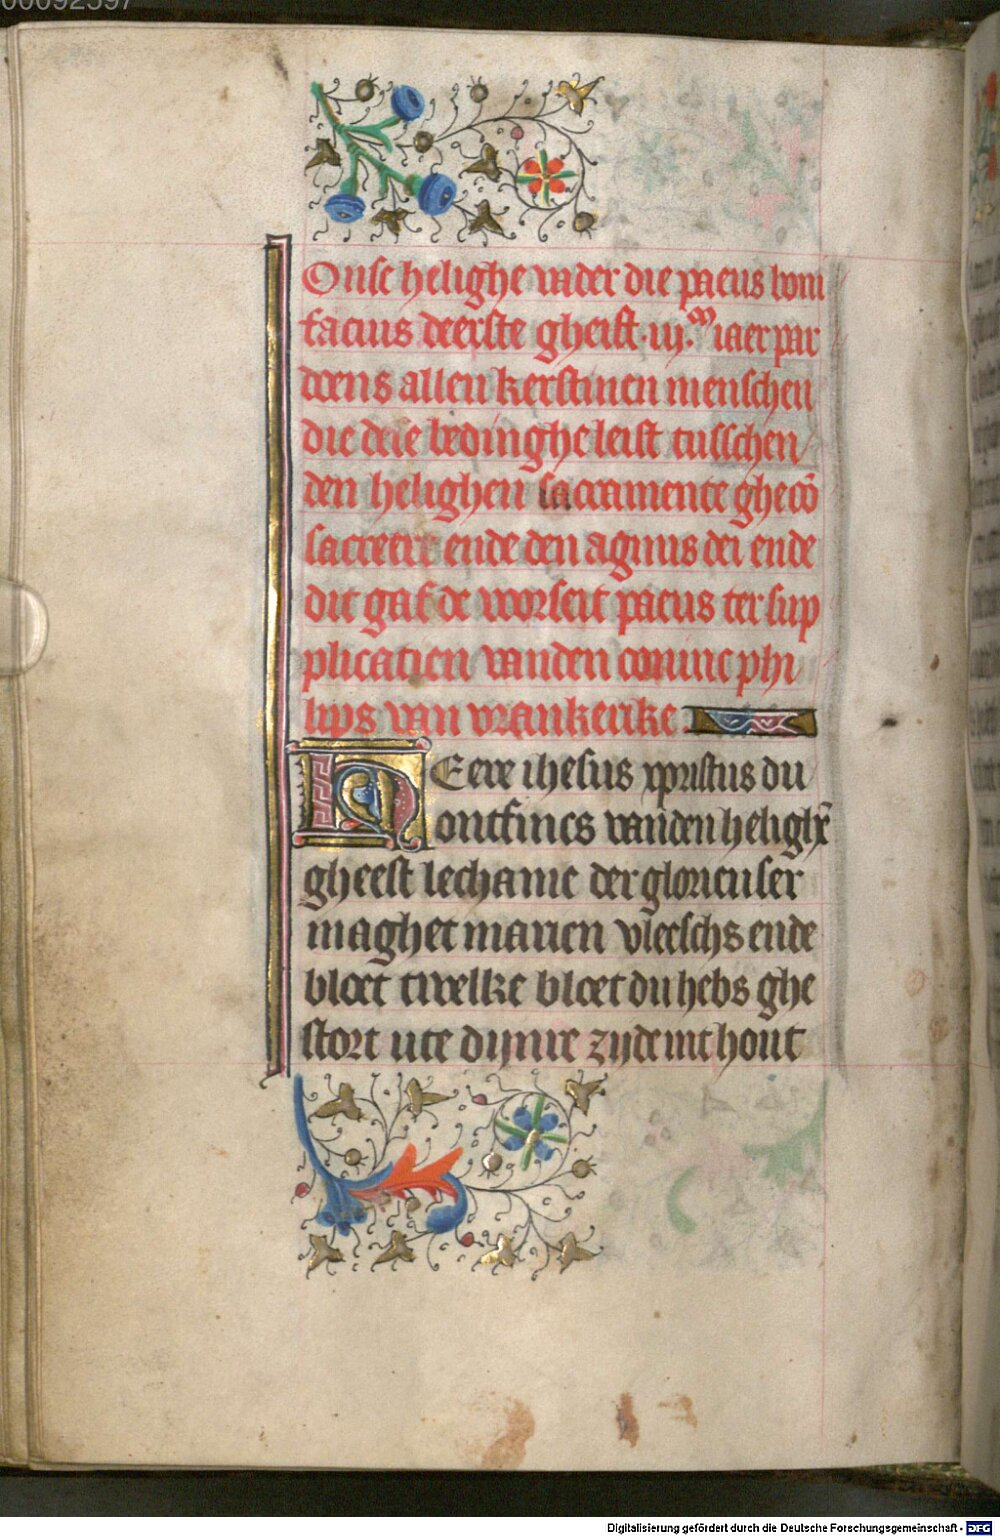 00092597
Onse helighe vader die paeus boni
facius deerste gheift .iij.M iaer par
doens allen kerstinen menschen
die dese bedinghe leist tusschen
den helighen sacramente ghecō
sacreert ende den agnus dei ende
dit gaf de voorseit paeus ter sup
plicatien vanden coninc phi
lips van vrankerike
HEere ihesus xpristus du
ontfincs vanden helighē
gheest lechame der glorieuser
maghet marien vleeschs ende
bloet twelke bloet du hebs ghe
stort ute dijnre zijde int hout
Digitalisierung gefördert durch die Deutsche Forschungsgemeinschaft - DFG